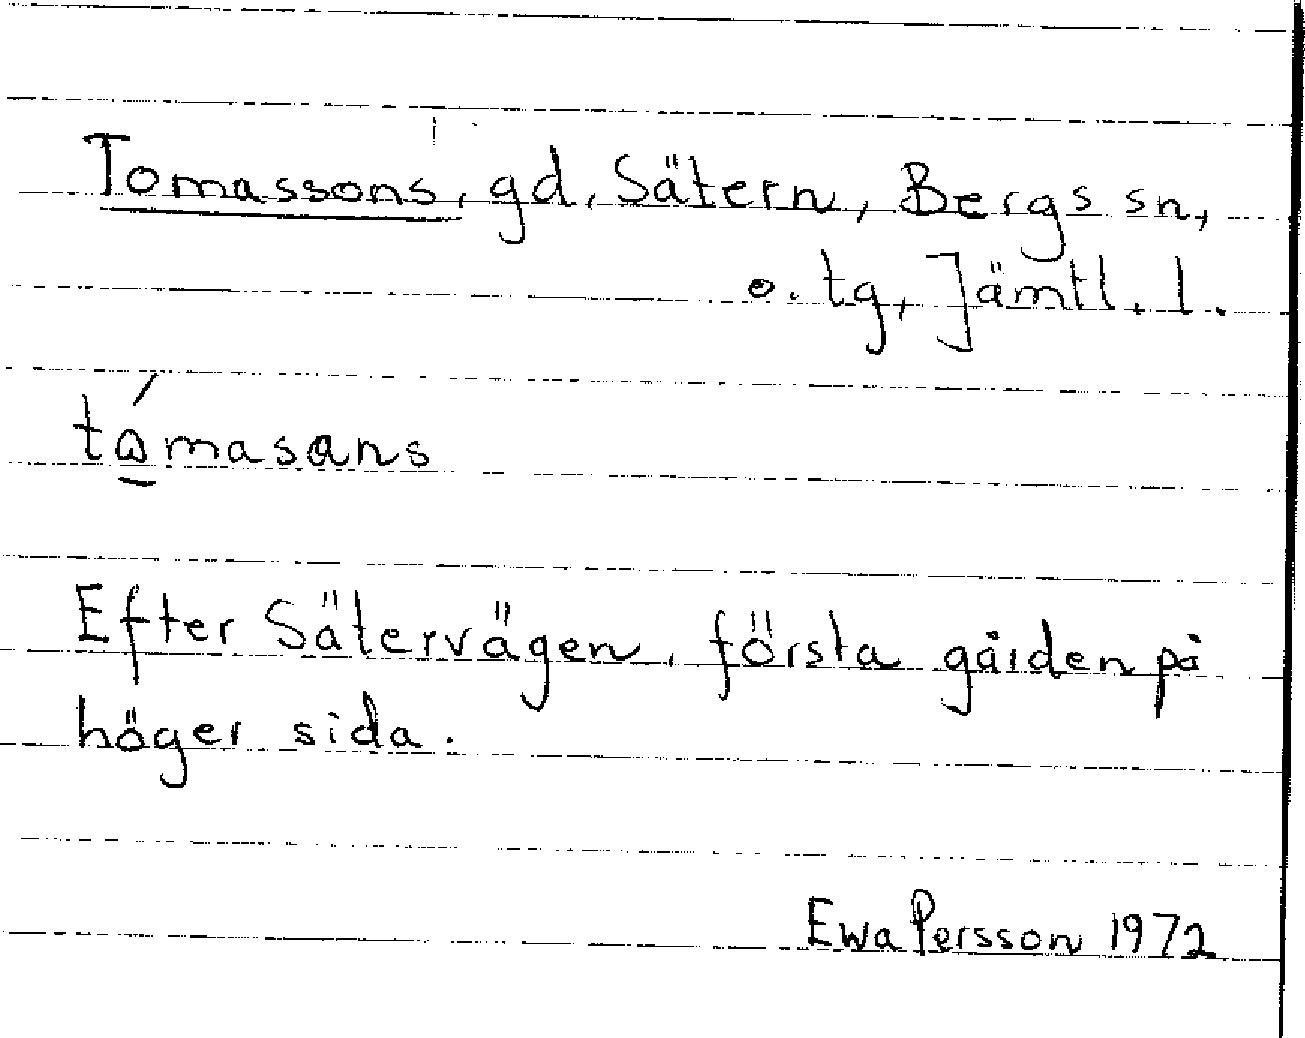 Tomassons, gd, Sätern, Bergs sn,
o. tg, Jämtl. l.
tώ̲masans
Efter Sätervägen, första gården på
höger sida.
Ewa Persson 1972